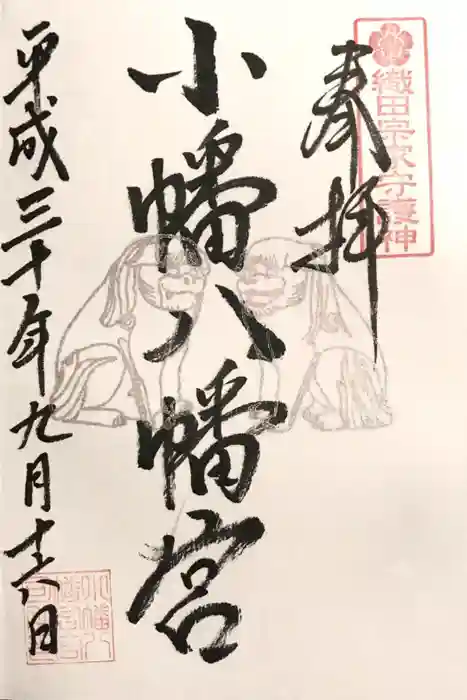 織田宗家守護神
奉拝
小幡八幡宮
平成三十年九月十六日